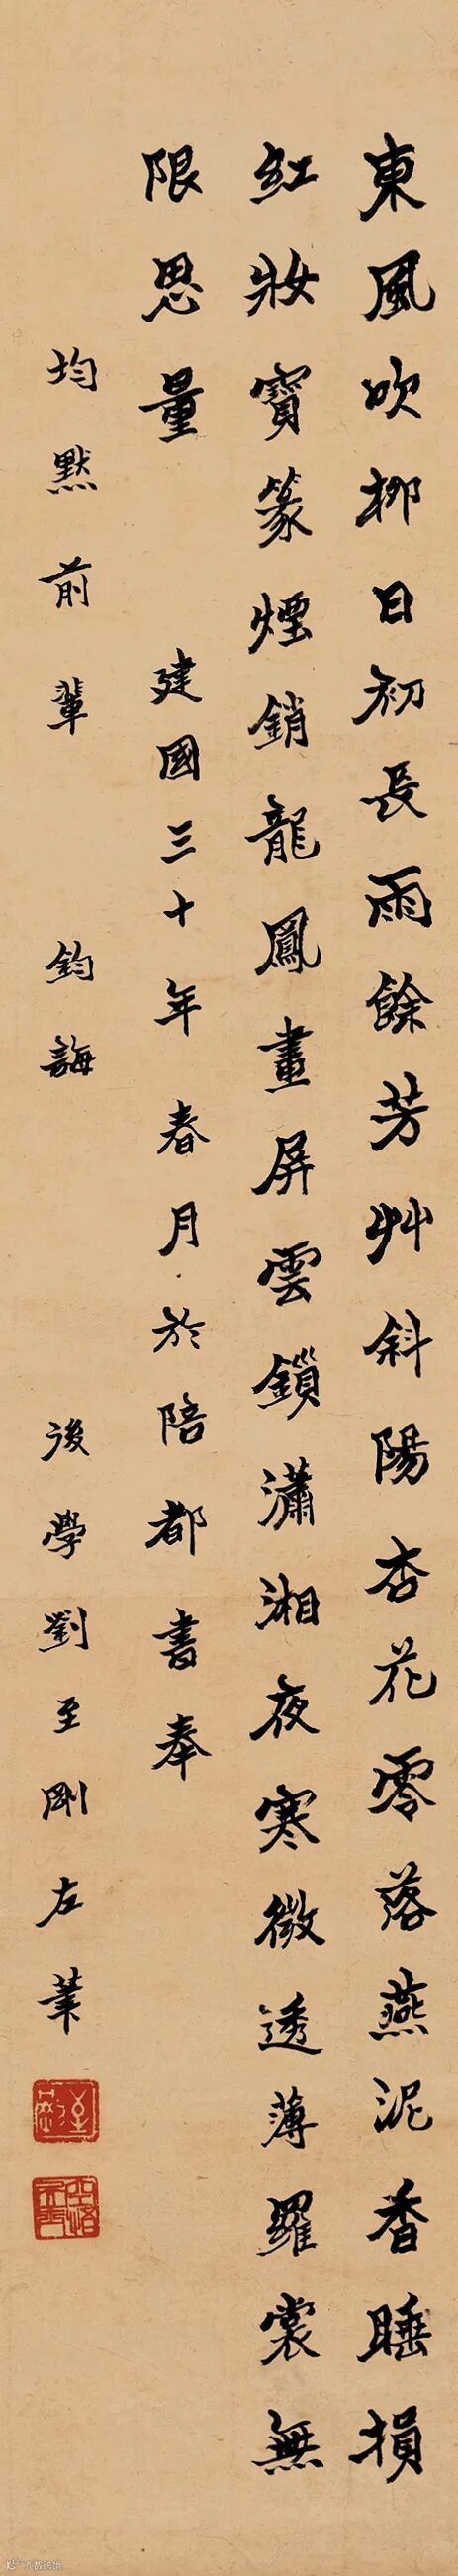 東風吹柳日初長雨餘芳艸斜陽杏花零落燕泥香睡損
紅妝寶篆煙銷龍鳳畫屏雲鎖瀟湘夜寒微透薄羅裳無
限思量
建國三十年春月於陪都書奉
均黙前輩 鈞誨
後學劉至剛左筆